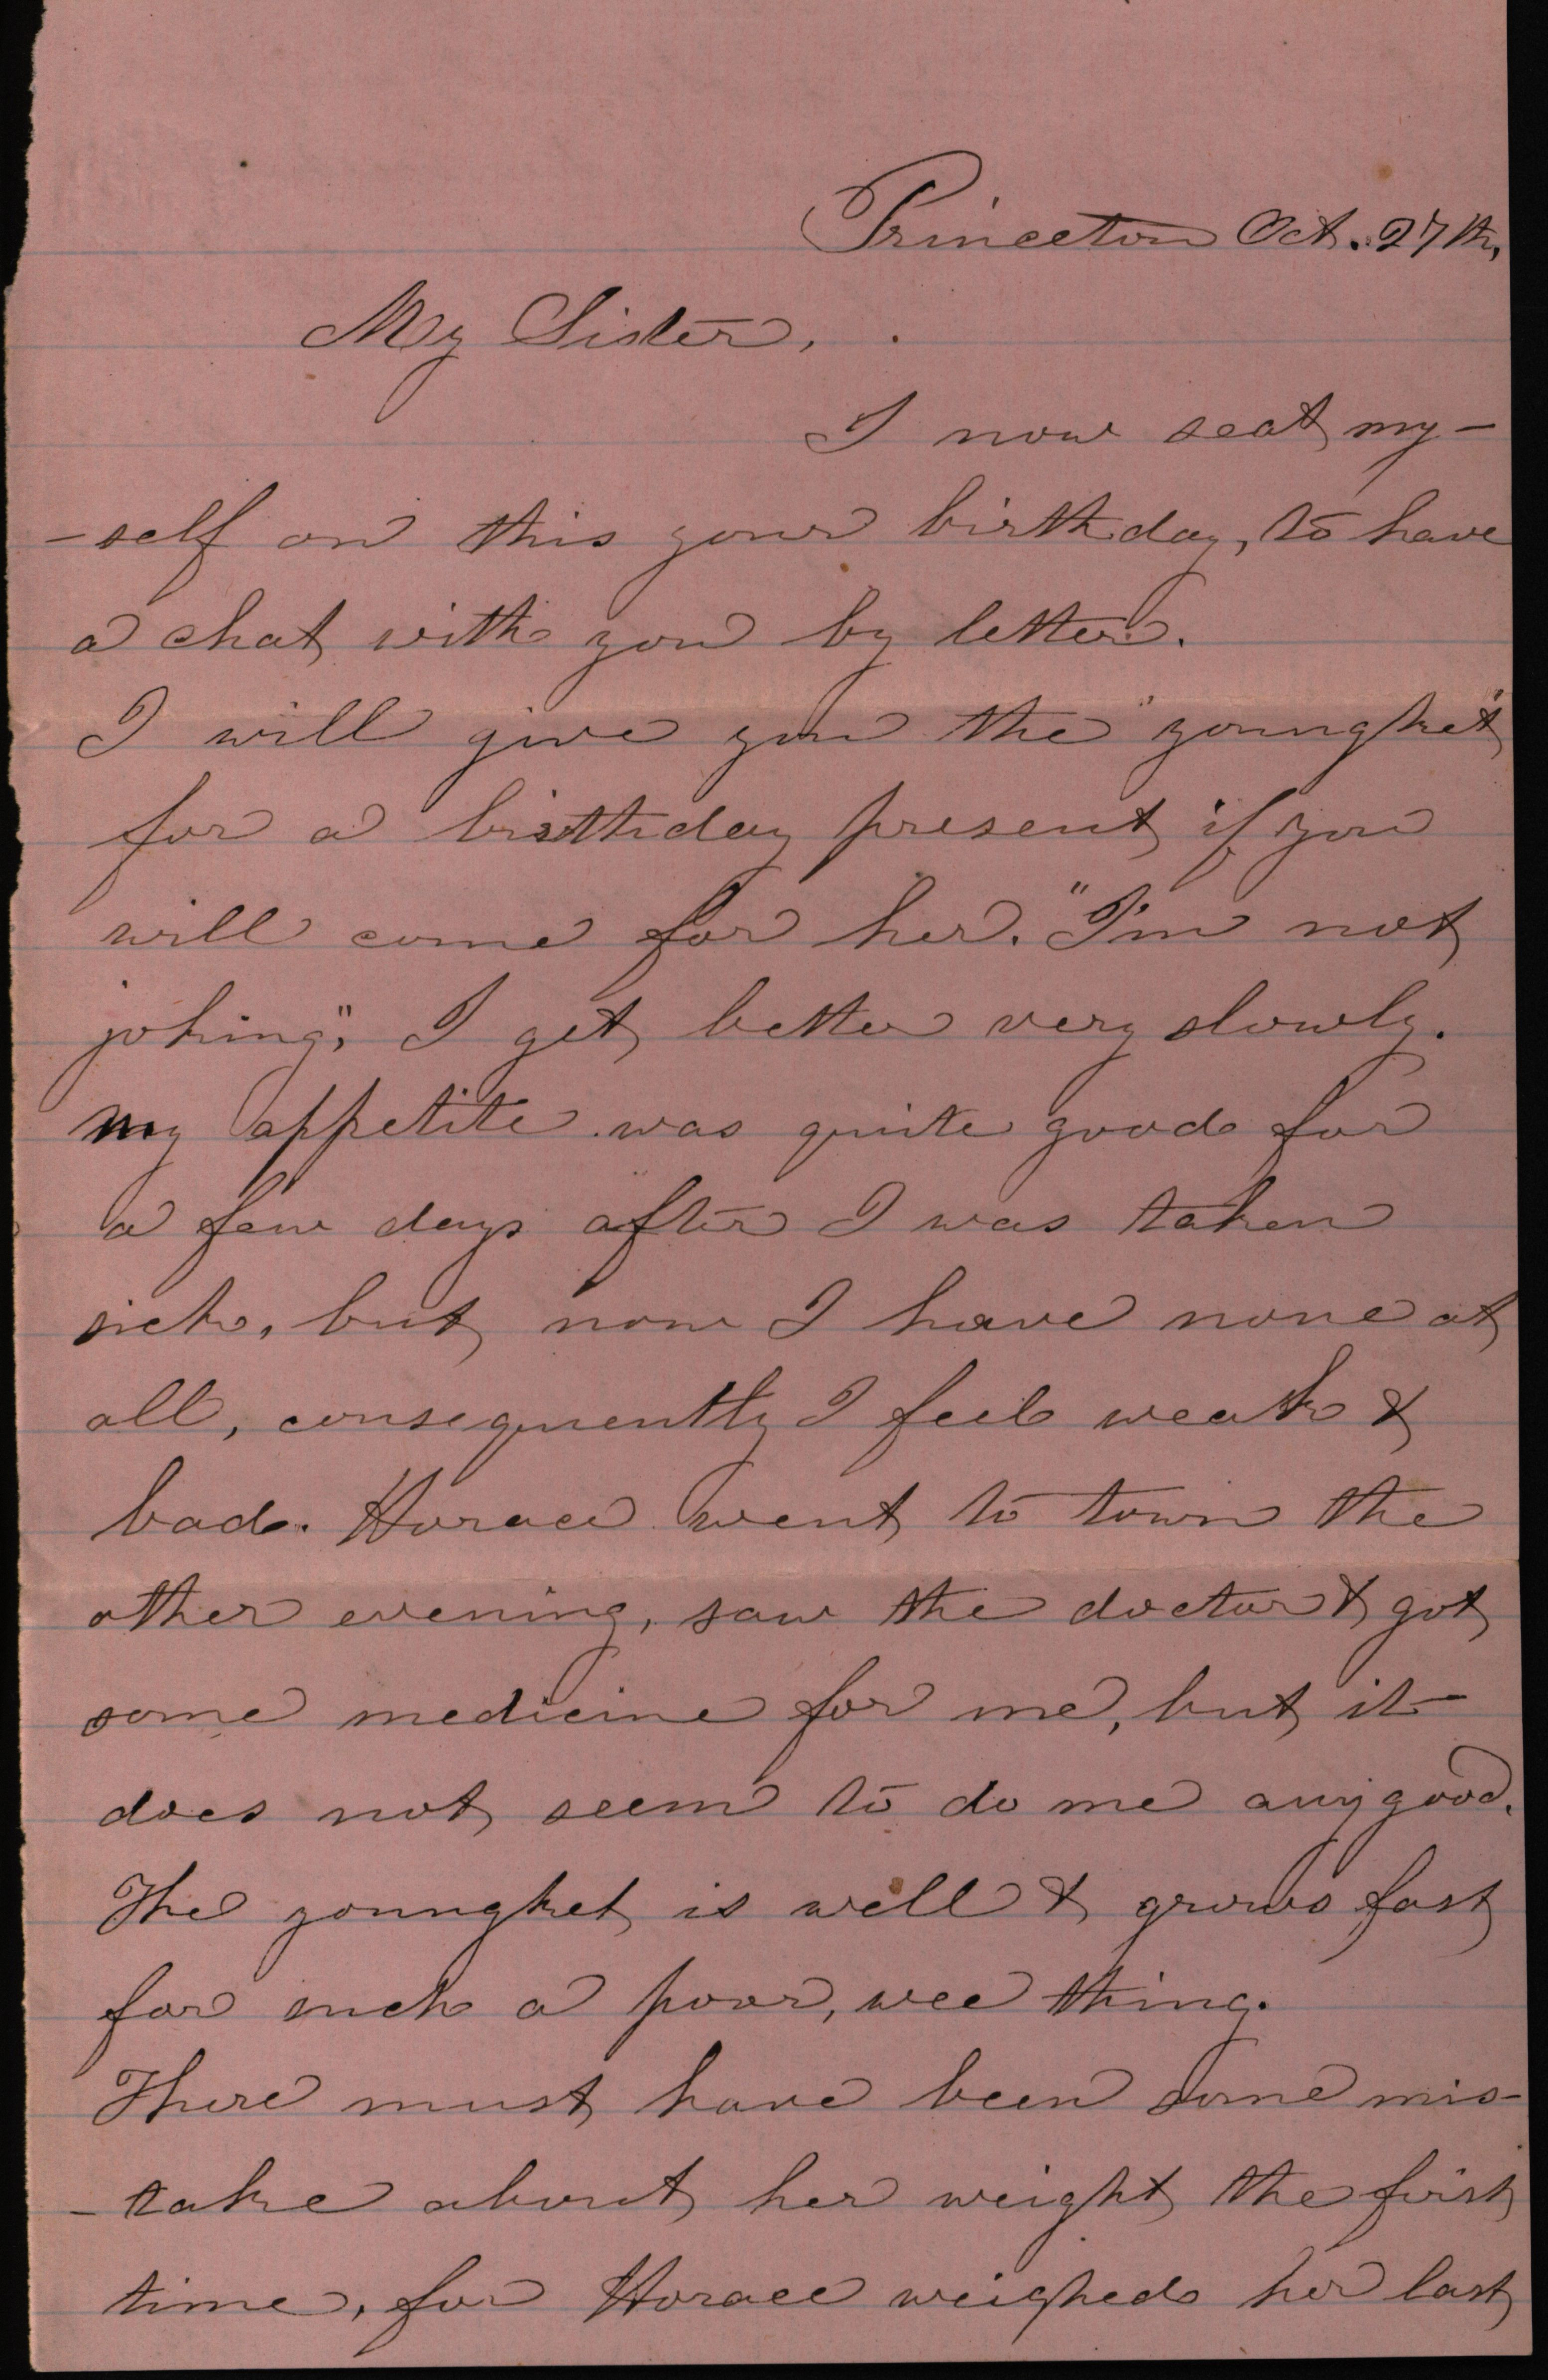 Princeton Oct. 27th,
My Sister,
I now seat my-
-self on this your birthday, to have
a chat with you by letter.
I will give you the "youngket"
for a birthday present if you
will come for her. "I'm not
joking", I get better very slowly.
my appetite was quite good for
a few days after I was taken
sick, but now I have none at
all, consequently I feel weak &
bad. Horace went to town the
other evening, saw the doctor & got
some medicine for me, but it
does not seem to do me any good.
The youngket is well & grows fast
for such a poor, wee thing.
There must have been some mis-
-take about her weight the first
time, for Horace weighed her last